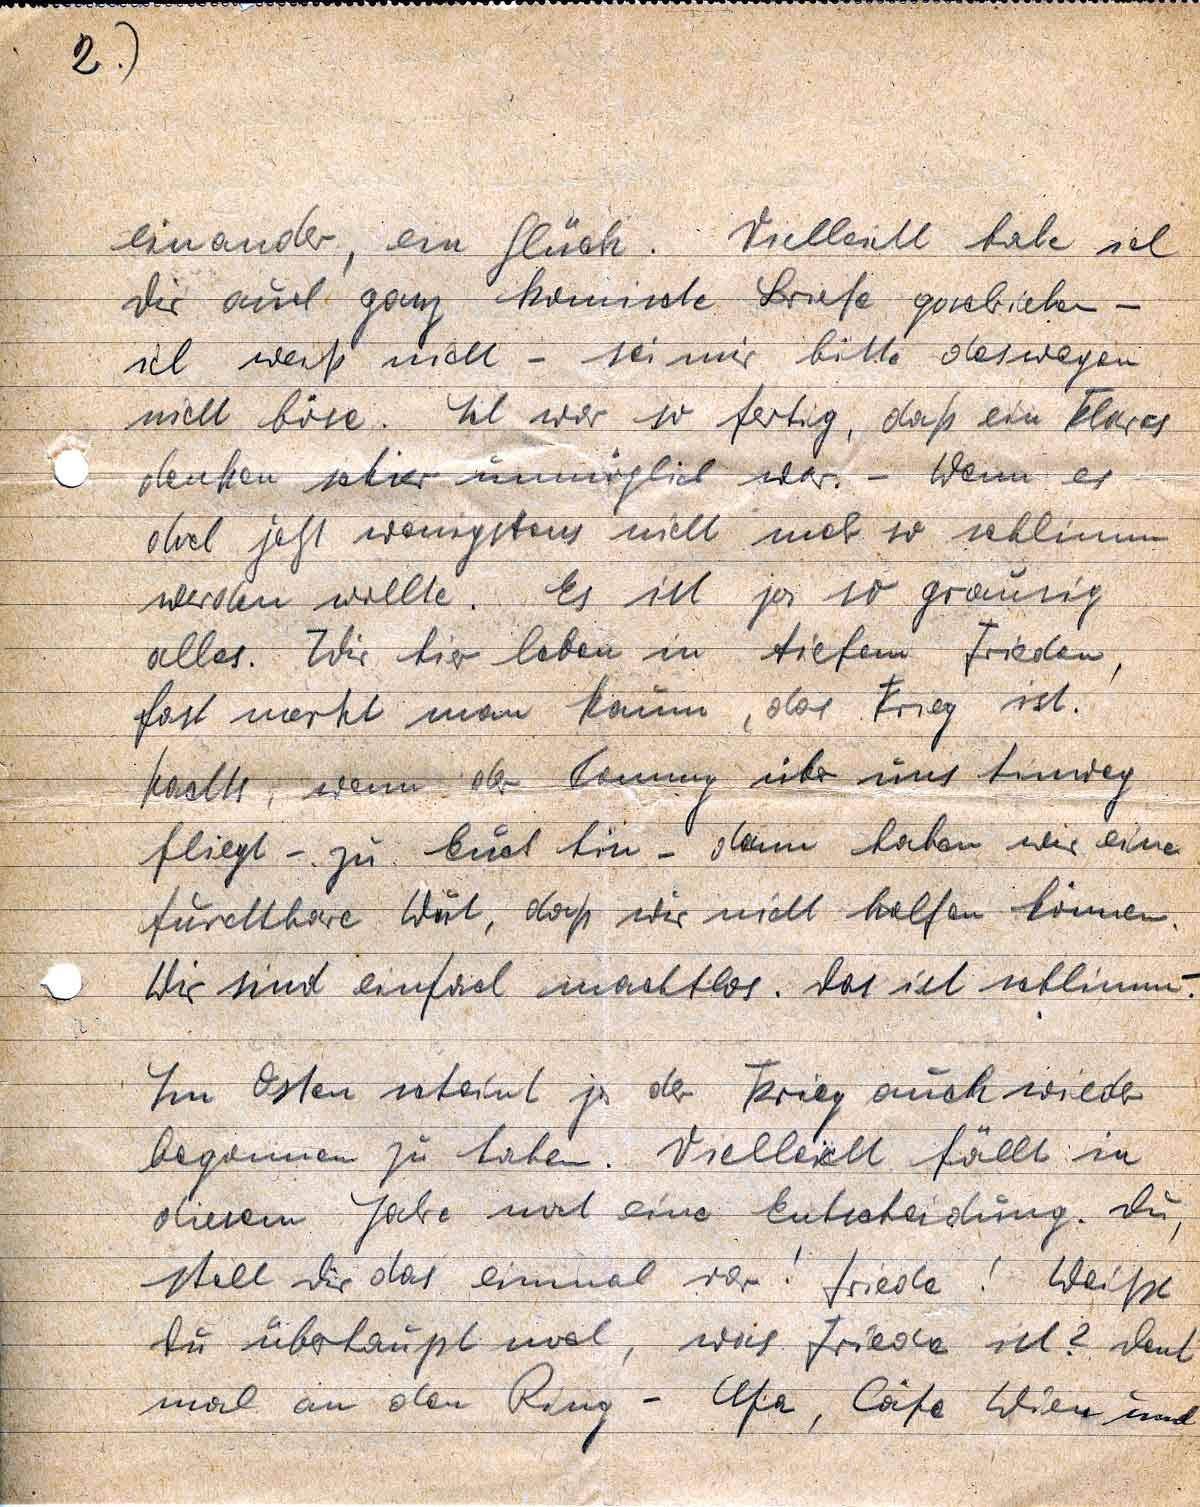 2.)
einander, ein Glück. Vielleicht habe ich
Dir auch ganz komische Briefe geschrieben –
ich weiß nicht – sei mir bitte deswegen
nicht böse. Ich war so fertig, daß ein klares
denken schier unmöglich war. – Wenn es
doch jetzt wenigstens nicht mehr so schlimm
werden wollte. Es ist ja so grausig
alles. Wir hier leben in tiefem Frieden,
fast merkt man kaum, das Krieg ist.
Nachts, wenn der Tommy über uns hinweg
fliegt – zu Euch hin – dann haben wir eine
furchtbare Wut, daß wir nicht helfen können.
Wir sind einfach machtlos. Das ist schlimm. –
Im Osten scheint ja der Krieg auch wieder
begonnen zu haben. Vielleicht fällt in
diesem Jahre noch eine Entscheidung. Du,
stell Dir das einmal vor! Friede! Weißt
Du überhaupt noch, was Friede ist? Denk
mal an den Ring – Ufa, Cáfe Wien und